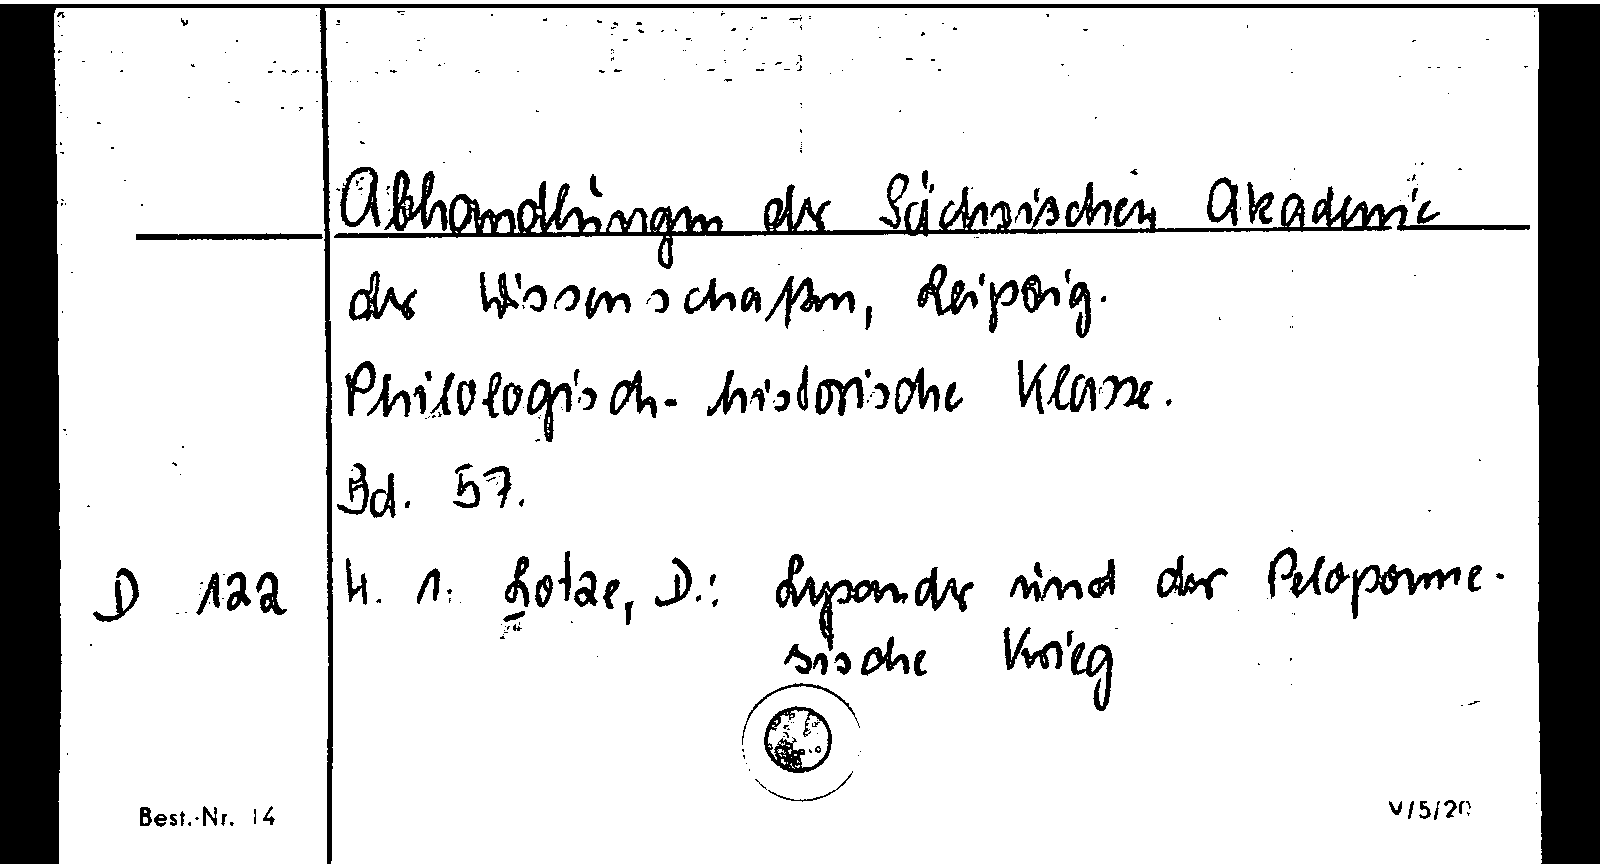 Abhandlungen der Sächsischen Akademie
der Wissenschaften, Leipzig.
Philologisch-historische Klasse.
Bd. 57.
D 122 H. 1. Lotze, D.: Lysander und der Peloponne-
sische Krieg
Best.-Nr. 14 V/5/20